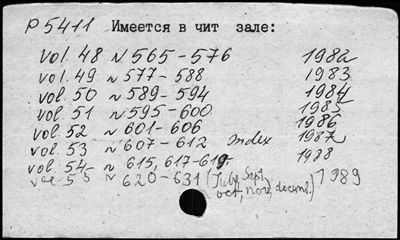 P 5411 Имеется в чит зале:
vol. 48 N 565-576 1982
vol. 49 N 577-588 1983
vol. 50 N 589-594 1984
vol. 51 N 595-600 1985
vol. 52 N 601-606 1986
vol. 53 N 607-612 Index 1987
vol. 54- N 615, 617-619, 1988
vol. 55 N 620-631 (July, Sept, 1989
oct, nov, decemb.)